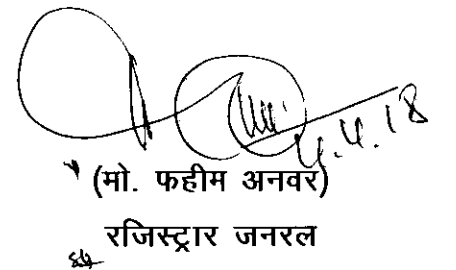 4.4.18
(मो. फहीम अनवर)
रजिस्ट्रार जनरल